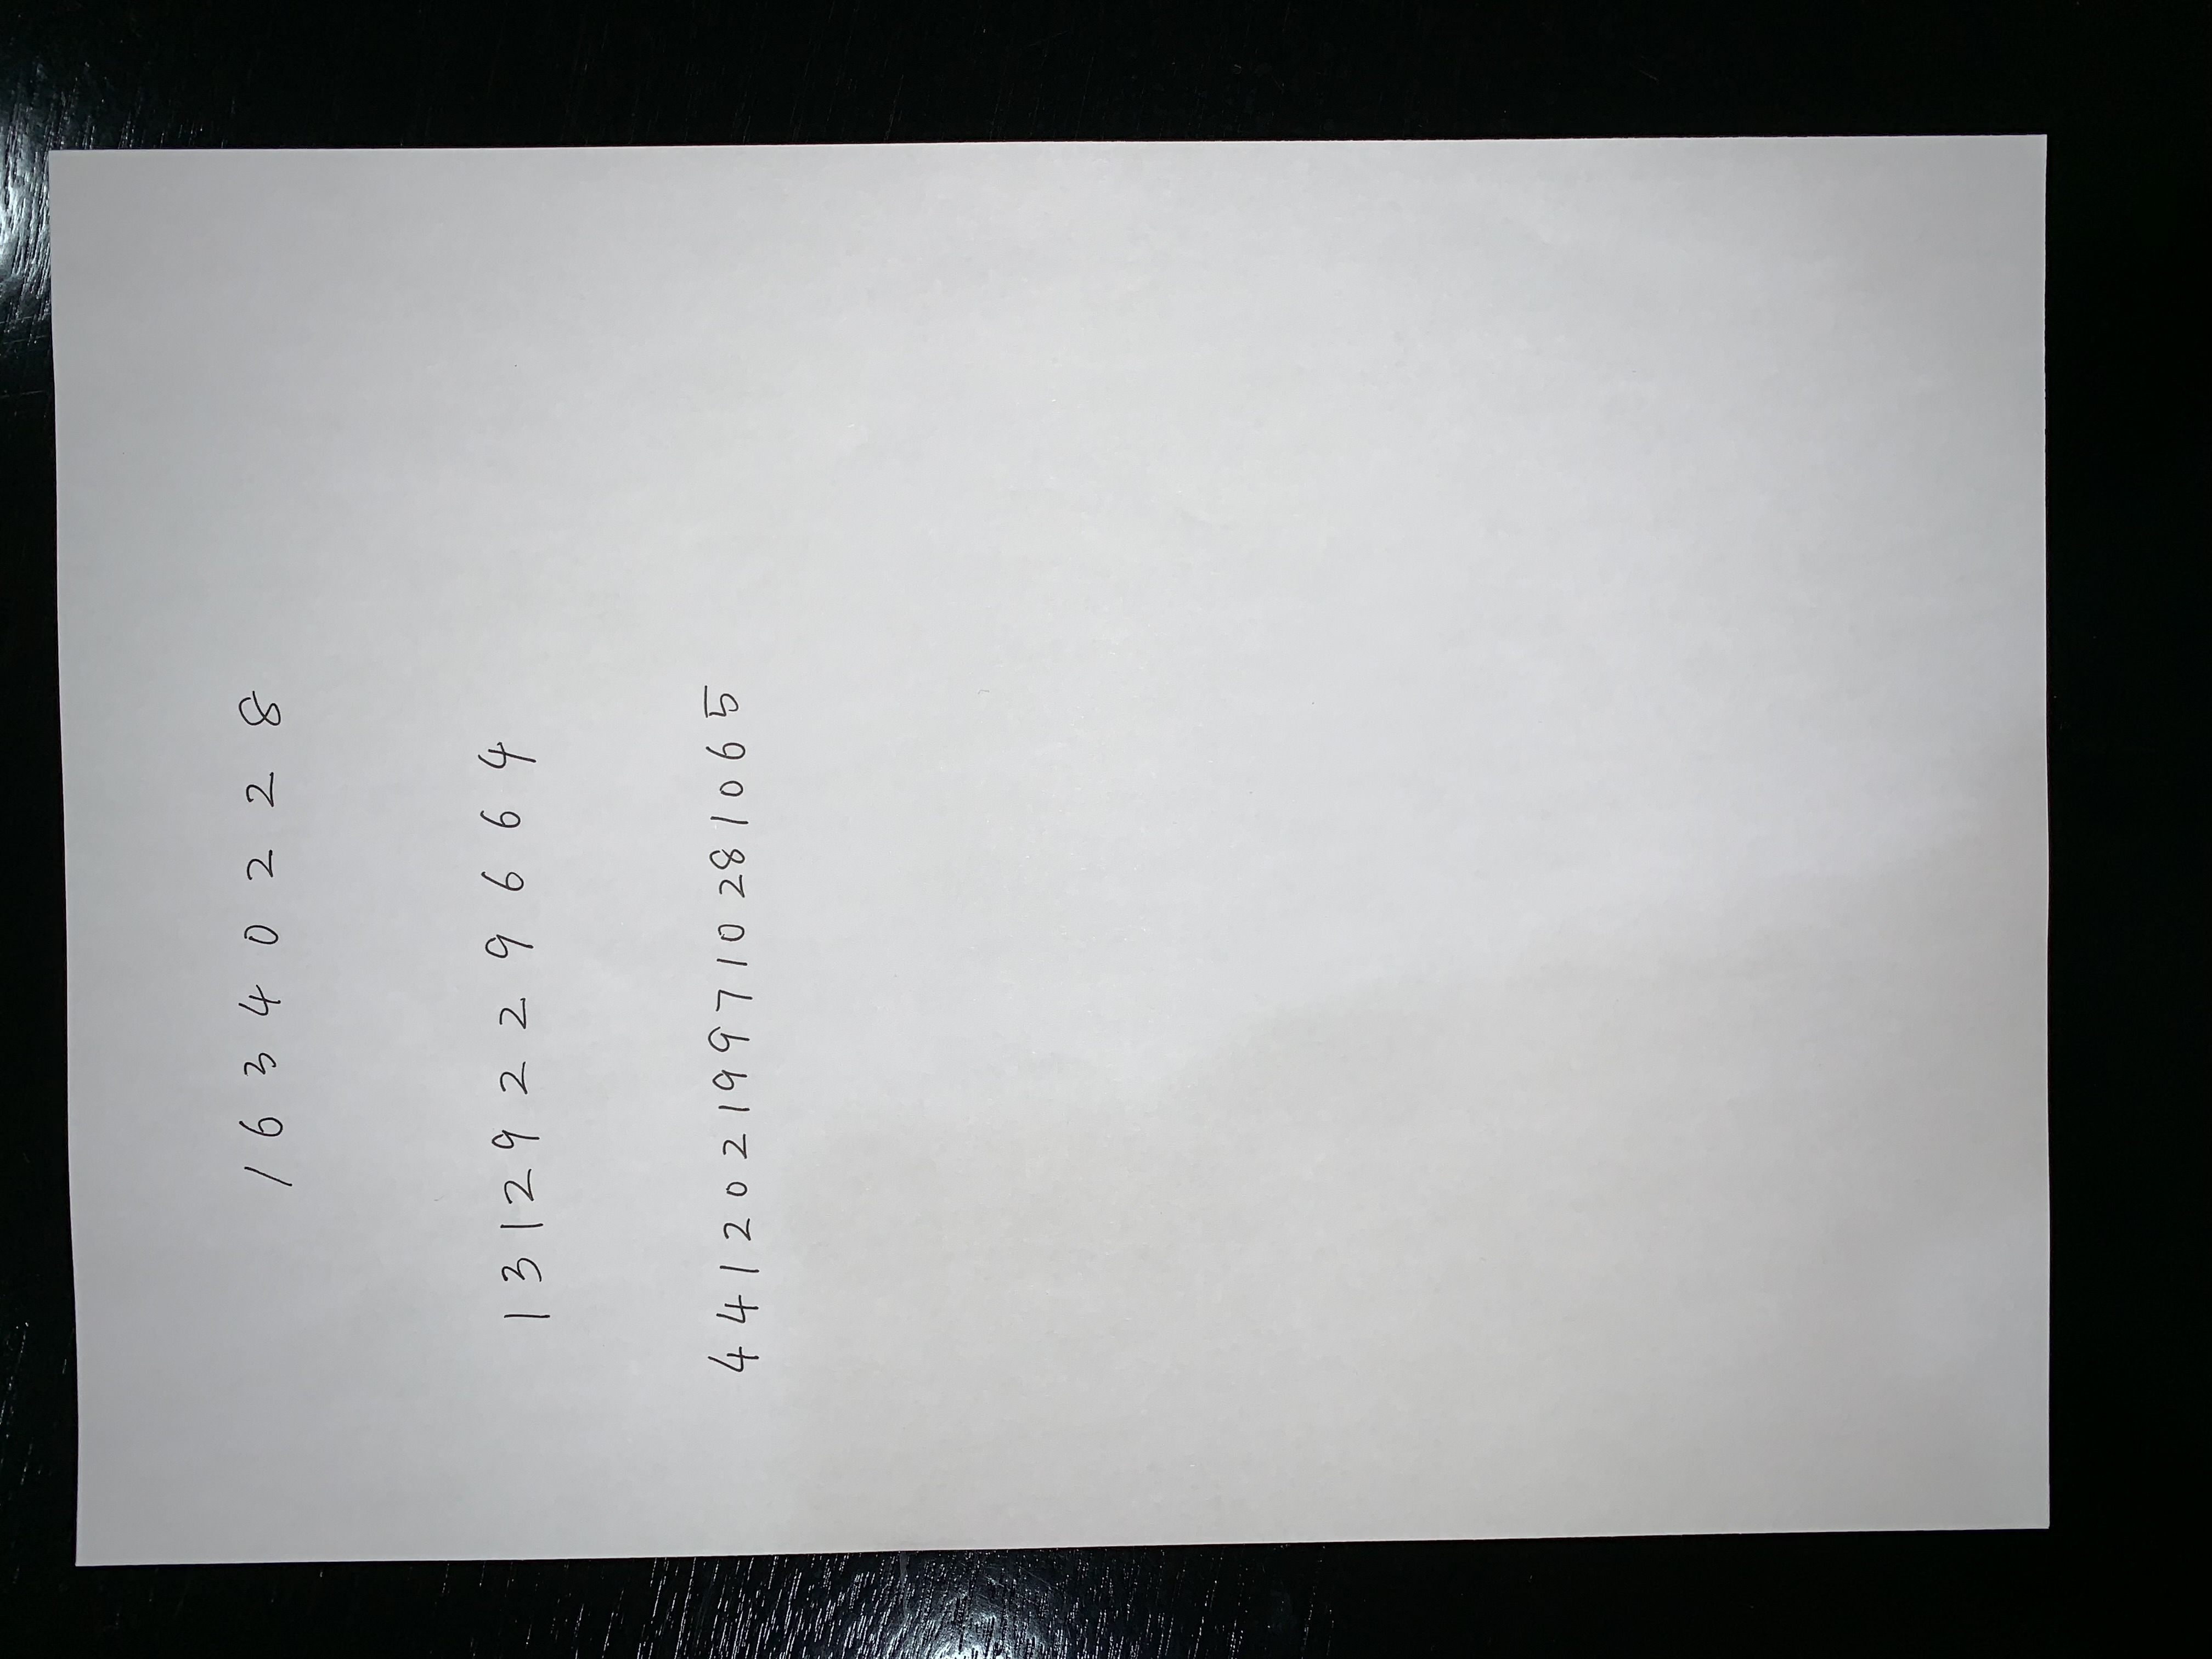 1 6 3 4 0 2 2 8
1 3 1 2 9 2 2 9 6 6 4
4 4 1 2 0 2 1 9 9 7 1 0 2 8 1 0 6 5